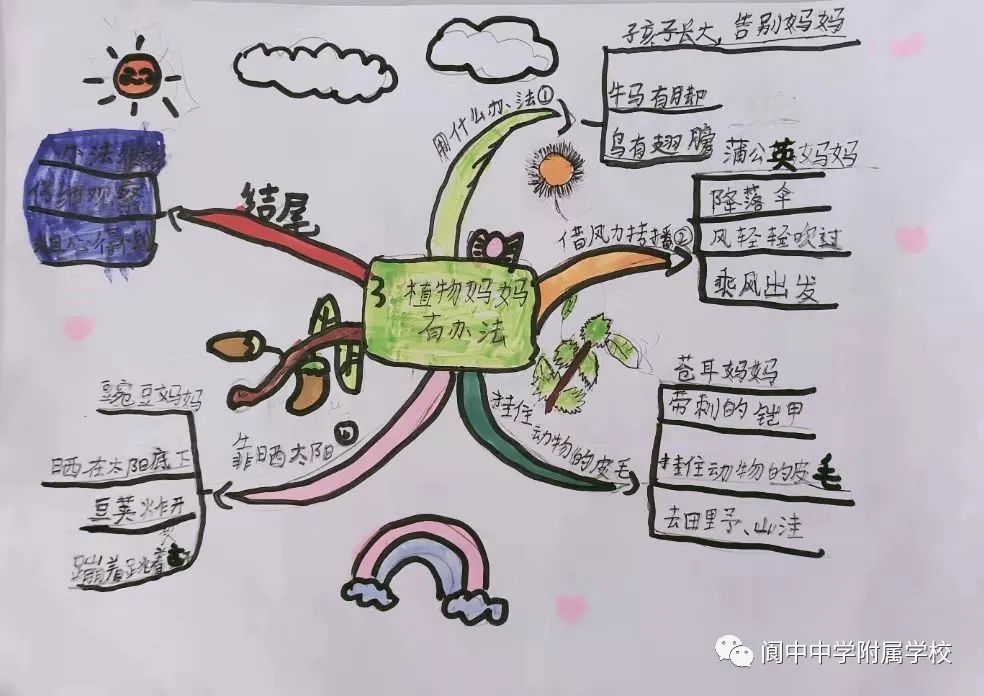 3 植物妈妈
有办法
用什么办法①
孩子长大,告别妈妈
牛马有脚
鸟有翅膀
借风力传播②
蒲公英妈妈
降落伞
风轻轻吹过
乘风出发
挂住动物的皮毛
苍耳妈妈
带刺的铠甲
挂住动物的皮毛
去田野、山洼
靠晒太阳
豌豆妈妈
晒在太阳底下
豆荚炸开
蹦着跳着
结尾
办法很多
仔细观察
阆中中学附属学校